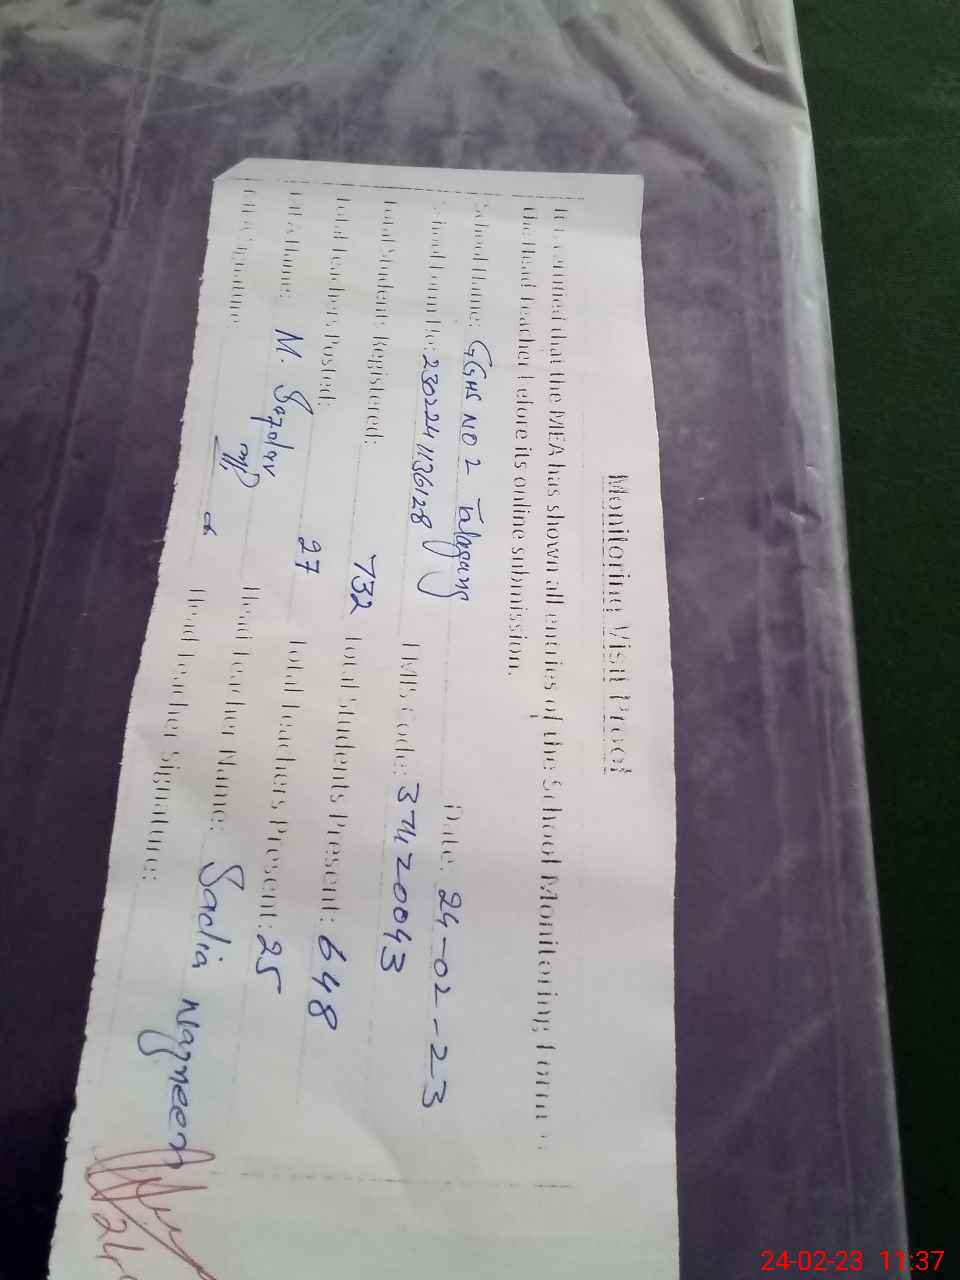 Monitoring Visit Proof
It is certified that the MEA has shown all entries of the School Monitoring Form to
the Head Teacher before its online submission.
School Name: GGHS NO 2 Talagang Date: 24-02-23
School Form No: 2302241136128 EMIS Code: 37420043
Total Students Registered: 732 Total Students Present: 648
Total Teachers Posted: 27 Total Teachers Present: 25
MEA Name: M. Head Teacher Name: Sadia Nazneen
MEA Signature: Head Teacher Signature:
24-02-23 11:37